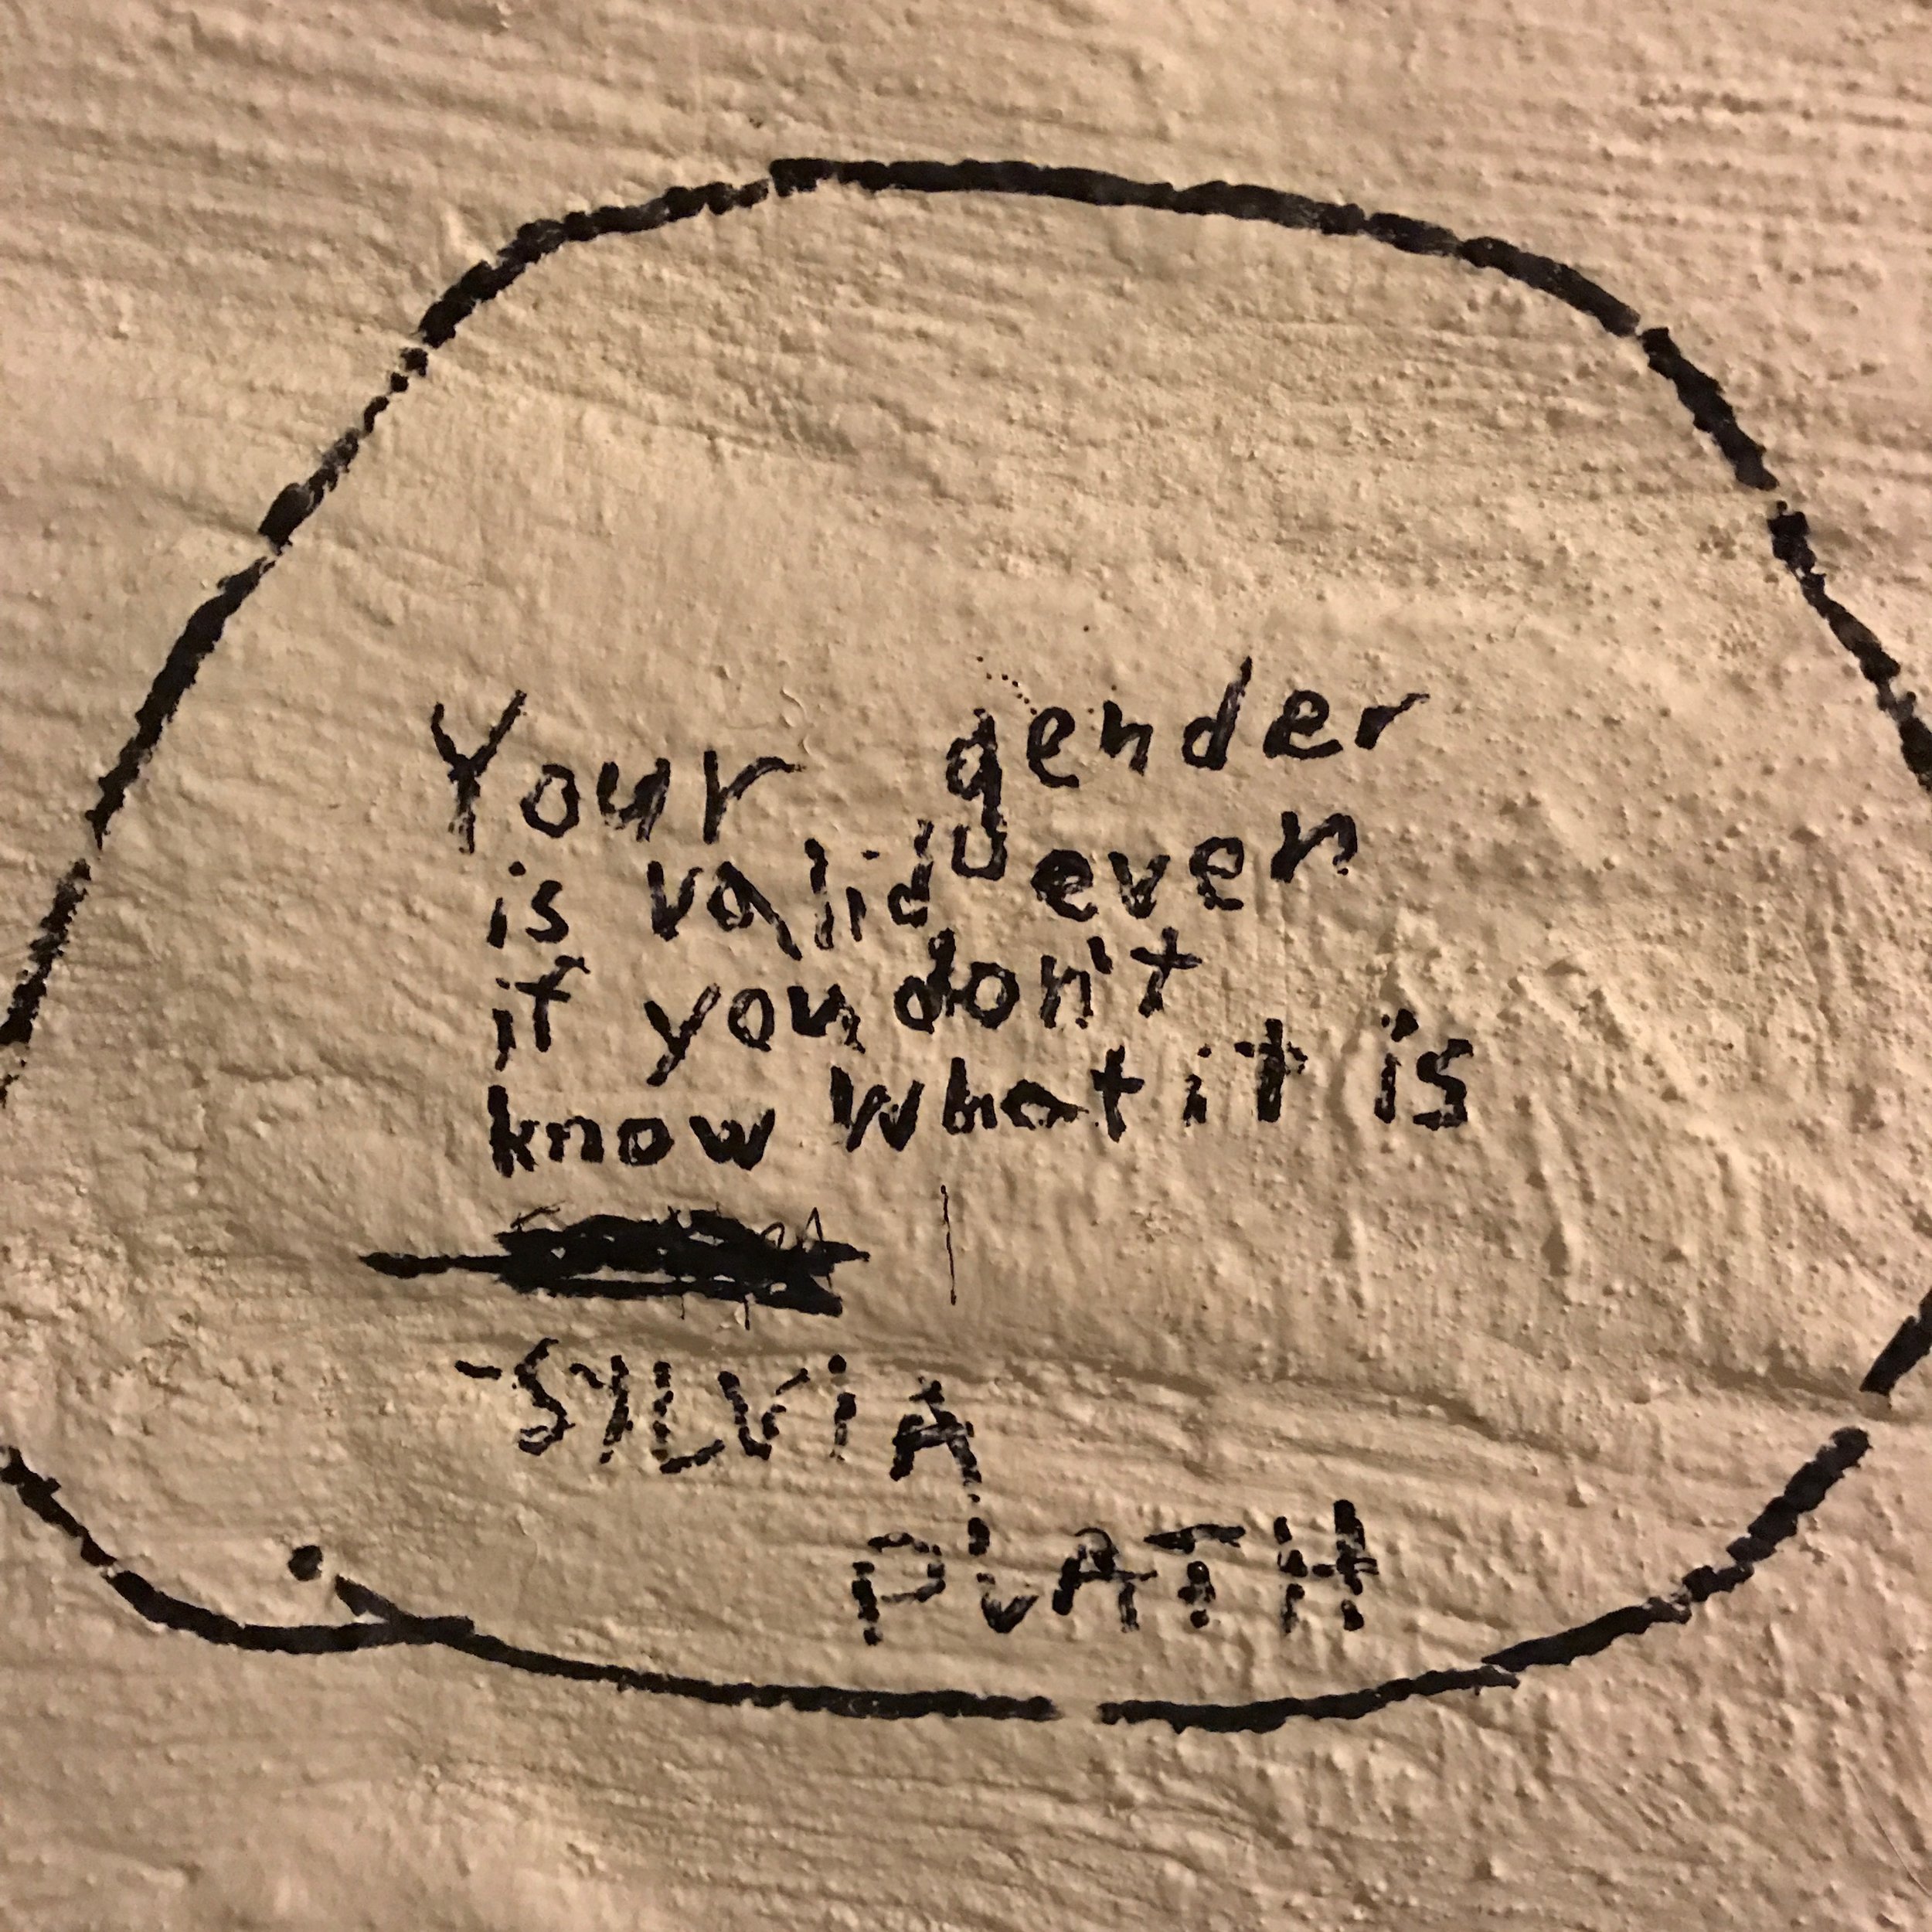 Your gender
is valid even
if you don't
know what it is
-SYLViA
PLATH